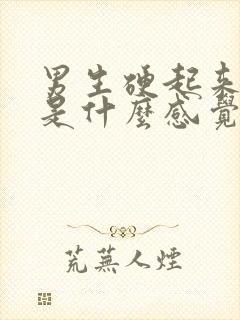 男生硬起来
是什麼感覺
荒蕪人煙